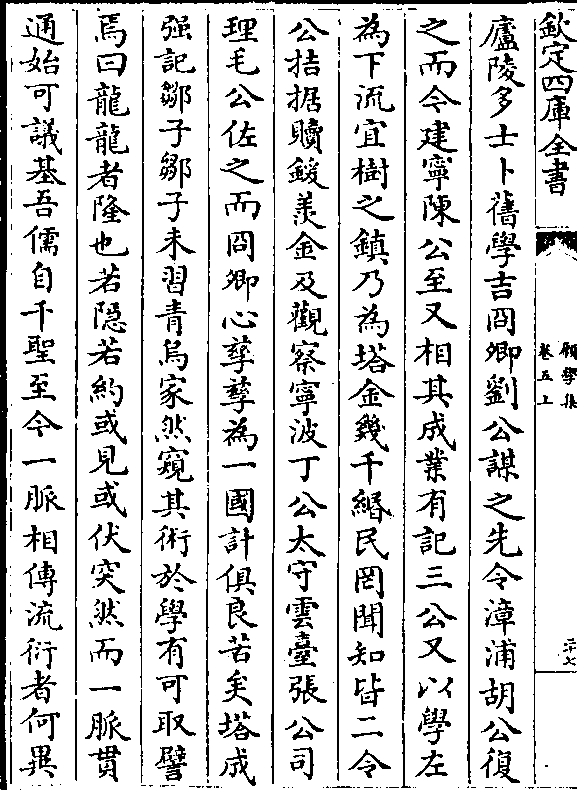 欽定四庫全書
願學集
卷五上
二十七
廬陵多士卜舊學吉冏卿劉公謀之先令漳浦胡公復
之而令建寧陳公至又相其成業有記三公又以學左
為下流宜樹之鎮乃為塔金幾千緡民罔聞知皆二令
公拮据贖鍰羨金及觀察寧波丁公太守雲臺張公司
理毛公佐之而冏卿心孳孳為一國計俱良苦矣塔成
强記鄒子鄒子未習青烏家然窺其術於學有可取譬
焉曰龍龍者隆也若隠若約或見或伏突然而一脈貫
通始可議基吾儒自千聖至今一脈相傳流衍者何異